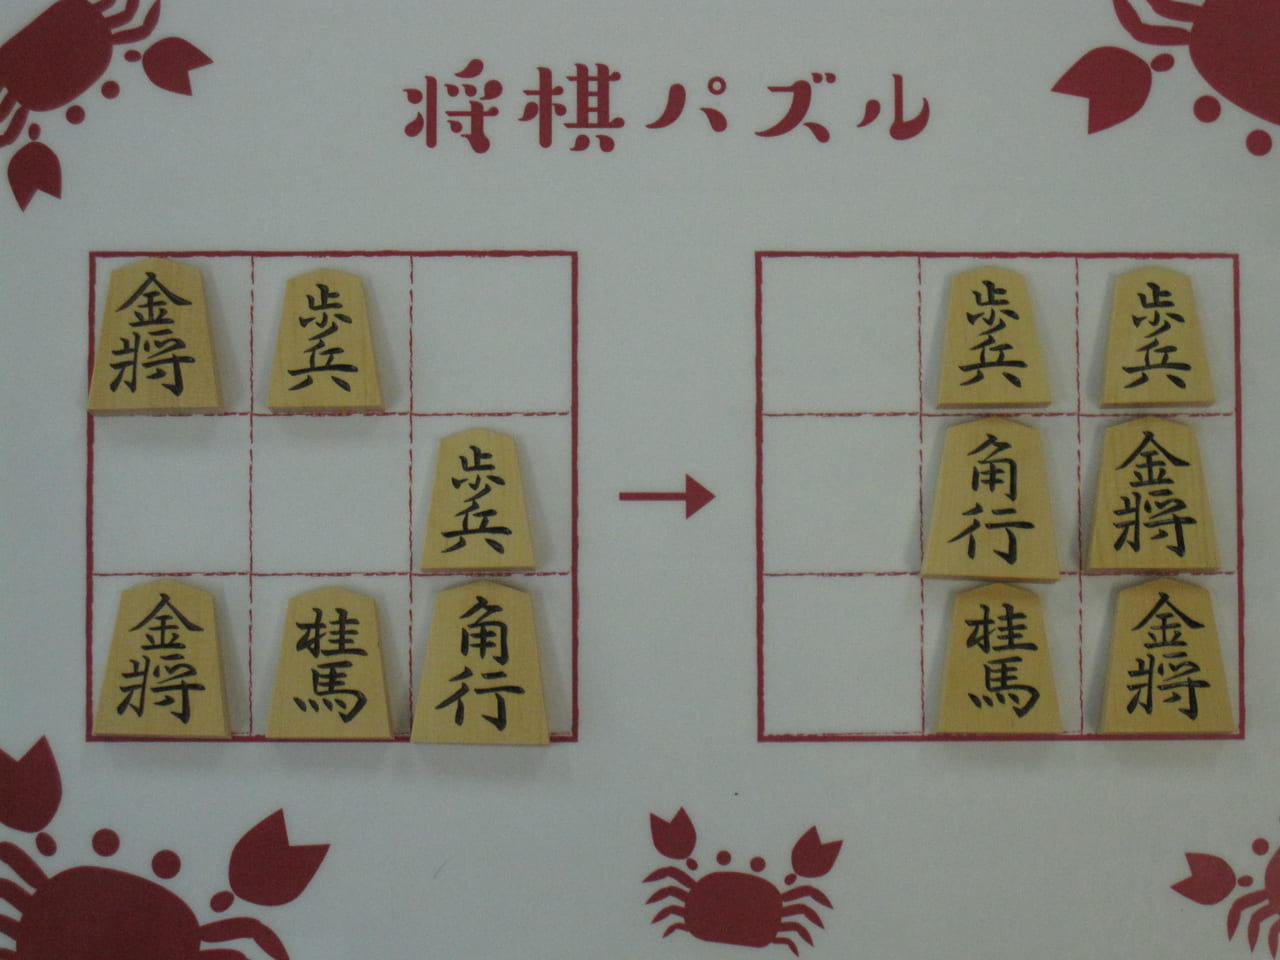 将棋パズル
金将 歩兵
歩兵
金将 桂馬 角行
→
歩兵 歩兵
角行 金将
桂馬 金将